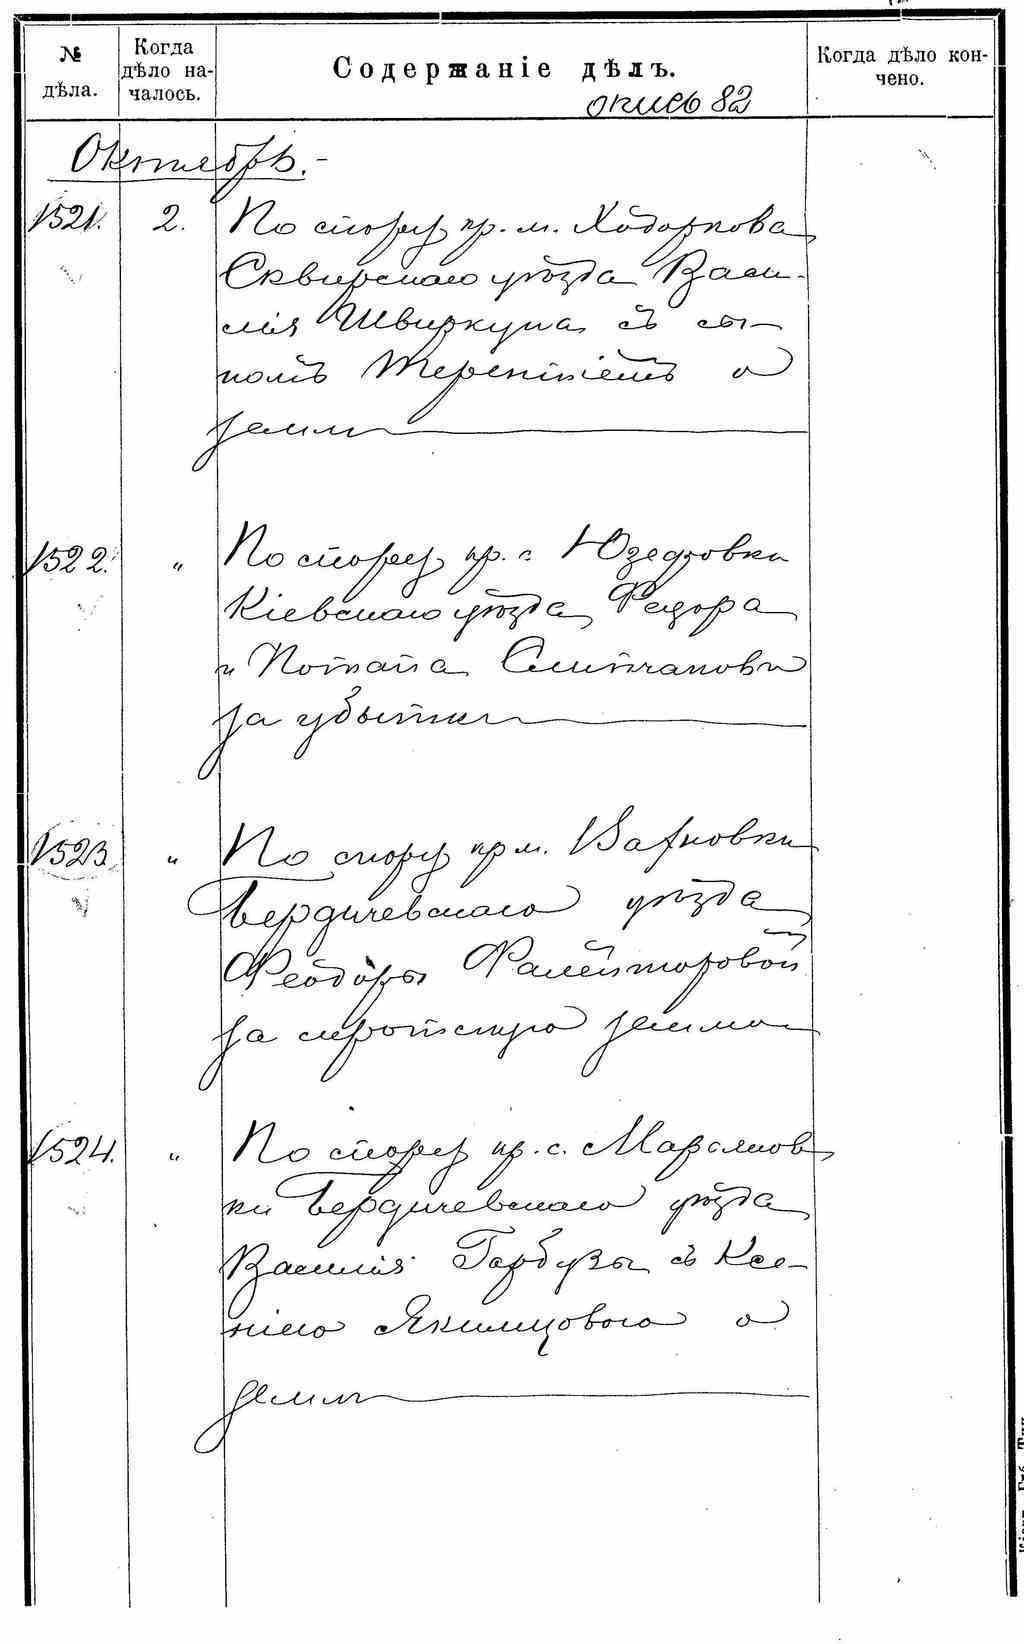 № дѣла.
Когда дѣло началось.
Содержаніе дѣлъ.
Когда дѣло кончено.
опись 82
Октябрь.-
1521. 2. По спору кр. м. Ходоркова
Сквирскаго уѣзда Васи-
лія Швиркуна съ сы-
номъ Терентіемъ о
землѣ
1522. „ По спору кр. с. Юзефовки
Кіевскаго уѣзда Федора
и Потапа
за убытки
1523. „ По спору кр м. Вахновки
Бердичевскаго уѣзда
Феодоры Фалейторовой
за сиротскую землю
1524. „ По спору кр. с. Марьянов
ки Бердичевскаго уѣзда
Василія Гарбузы съ Ксе-
ніею Якимцовою о
землѣ